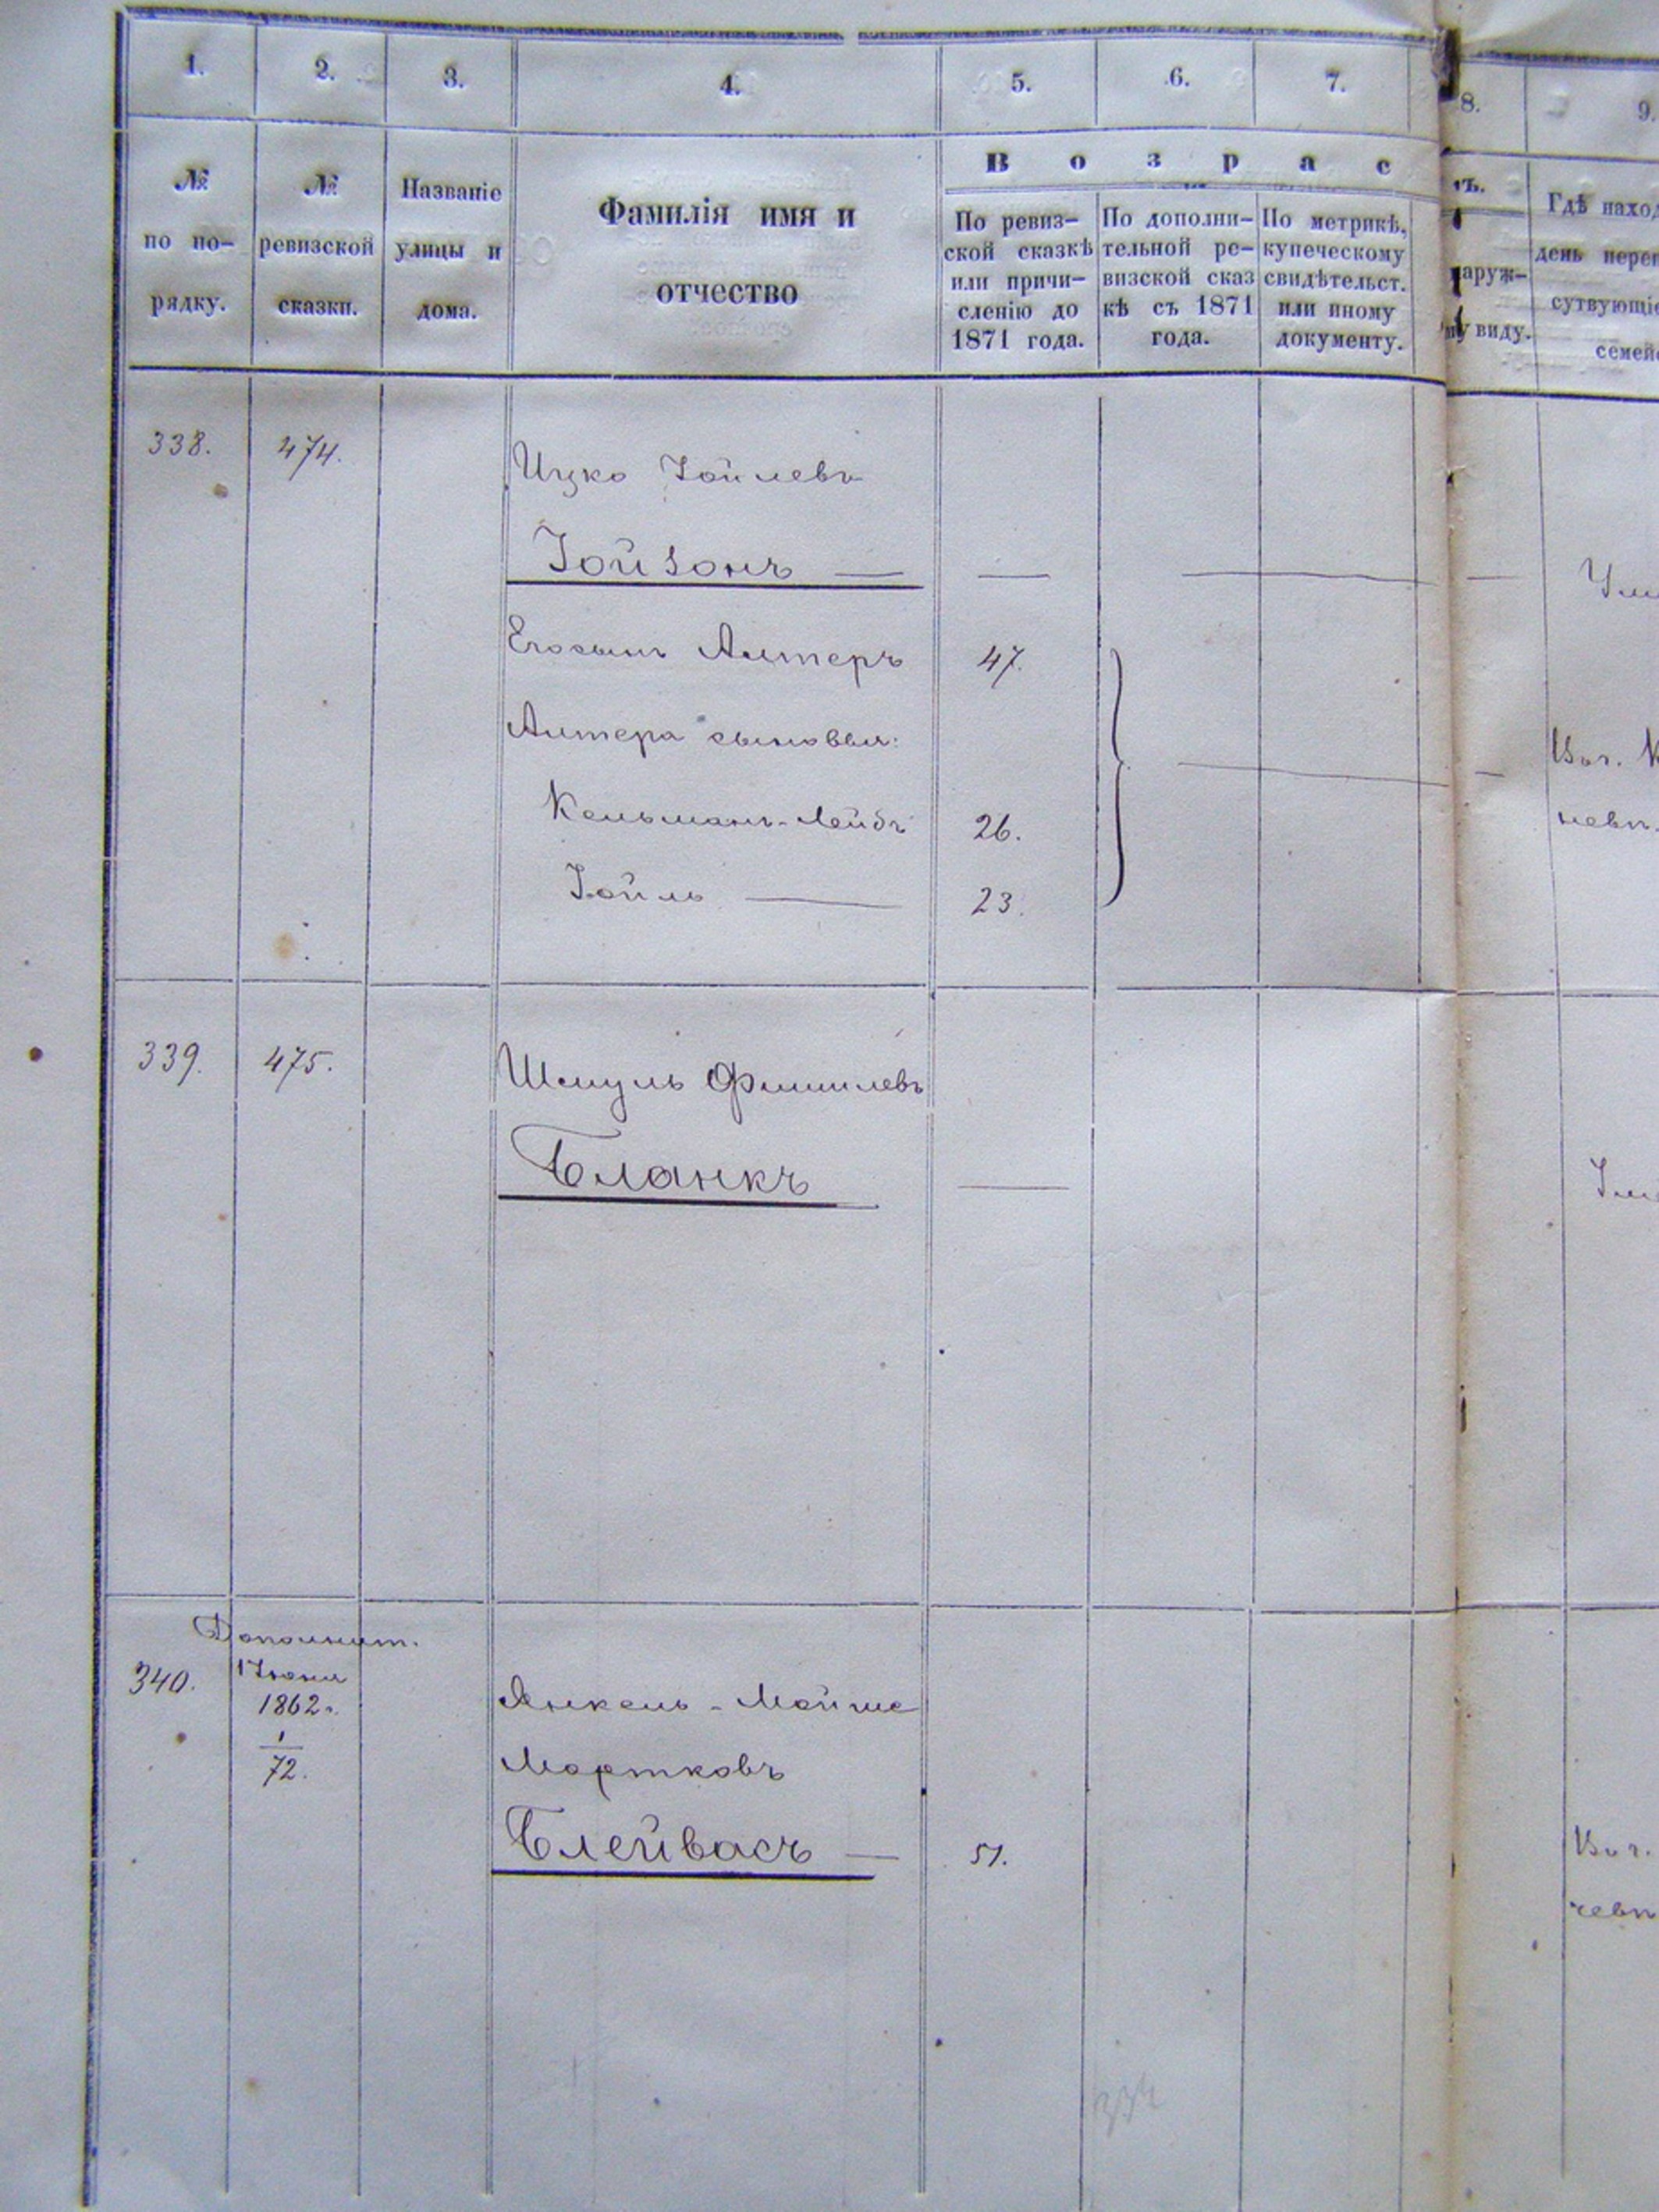 1. 2. 3. 4. 5. 6. 7. 8. 9.
№ по по-рядку.
№ ревизской сказки.
Названіе улицы и дома.
Фамилія имя и отчество
В о з р а с тъ.
По ревиз-
ской сказкѣ
или причи-
сленію до
1871 года.
По дополни-
тельной ре-
визской сказ
кѣ съ 1871
года.
По метрикѣ,
купеческому
свидѣтельст.
или иному
документу.
аруж-
му виду.
Гдѣ наход
день переп
сутвующіе
семей
338. 474. Ицко Іойлевъ
Іойзонъ —
Его сынъ Алтеръ 47.
Алтера сыновья:
Кельманъ-Лейбъ 26.
Іойль — 23.
339. 475. Шмуль Фишилевъ
Бланкъ —
Дополнит.
340. 1 Іюня
1862 г.
1
72.
Янкель-Мойше
Мортковъ
Блейвасъ — 51.
334